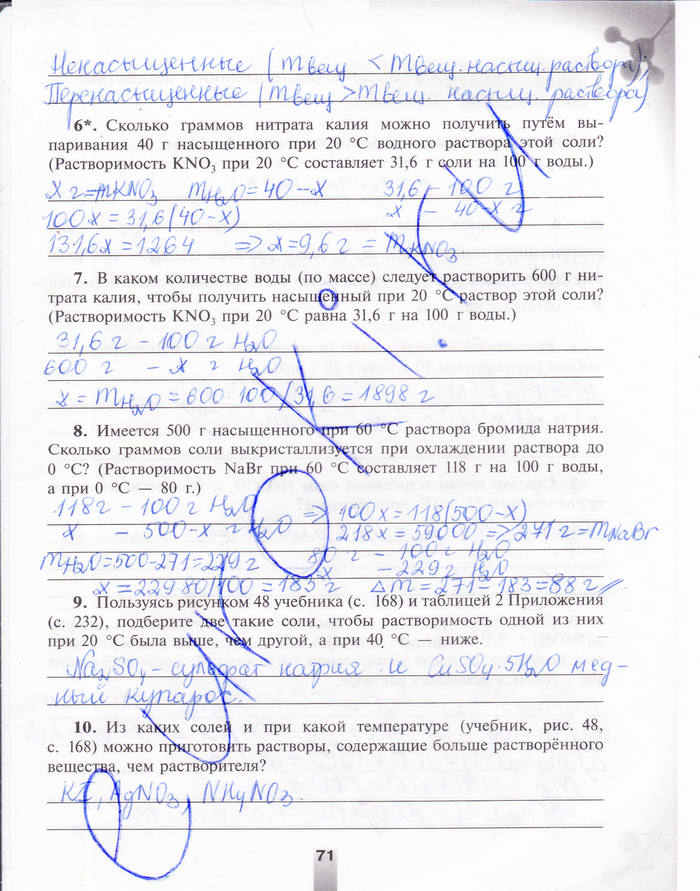 Ненасыщенные (mвещ < mвещ. насыщ. раствора);
Перенасыщенные (mвещ > mвещ. насыщ. раствора)
6*. Сколько граммов нитрата калия можно получить путём вы-
паривания 40 г насыщенного при 20 °C водного раствора этой соли?
(Растворимость KNO₃ при 20 °C составляет 31,6 г соли на 100 г воды.)
x г = mKNO₃ mH₂O = 40 - x 31,6 - 100 г
100x = 31,6(40-x) x - 40-x г
131,6x = 1264 => x = 9,6 г = mKNO₃
7. В каком количестве воды (по массе) следует растворить 600 г ни-
трата калия, чтобы получить насыщенный при 20 °C раствор этой соли?
(Растворимость KNO₃ при 20 °C равна 31,6 г на 100 г воды.)
31,6 г - 100 г H₂O
600 г - x г H₂O
x = mH₂O = 600·100/31,6 = 1898 г
8. Имеется 500 г насыщенного при 60 °C раствора бромида натрия.
Сколько граммов соли выкристаллизуется при охлаждении раствора до
0 °C? (Растворимость NaBr при 60 °C составляет 118 г на 100 г воды,
а при 0 °C — 80 г.)
118 г - 100 г H₂O => 100x = 118(500-x)
x - 500-x г H₂O 218x = 59000 => 271 г = mNaBr
mH₂O = 500-271 = 229 г 80 г - 100 г H₂O
x - 229 г H₂O
x = 229·80/100 = 183 г Δm = 271-183 = 88 г
9. Пользуясь рисунком 48 учебника (с. 168) и таблицей 2 Приложения
(с. 232), подберите две такие соли, чтобы растворимость одной из них
при 20 °C была выше, чем другой, а при 40 °C — ниже.
Na₂SO₄ - сульфат натрия и CuSO₄·5H₂O мед-
ный купарос.
10. Из каких солей и при какой температуре (учебник, рис. 48,
с. 168) можно приготовить растворы, содержащие больше растворённого
вещества, чем растворителя?
KI, AgNO₃, NH₄NO₃.
71